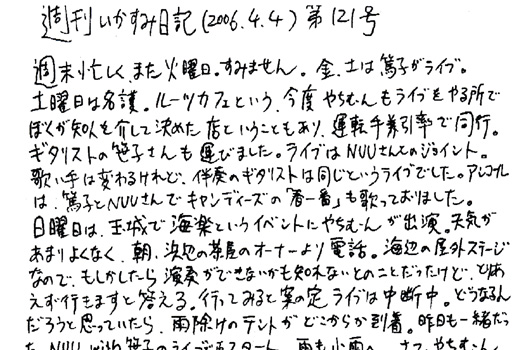 週刊いかすみ日記(2006.4.4)第121号
週末忙しく、また火曜日。すみません。金、土は篤子がライブ。
土曜日は名護。ルーツカフェという、今度やちむんもライブをやる所で
ぼくが知人を介して決めた店ということもあり、運転手兼引率で同行。
ギタリストの笹子さんも運びました。ライブはNUUさんとのジョイント。
歌い手は変わるけれど、伴奏のギタリストは同じというライブでした。アンコール
は、篤子とNUUさんでキャンディーズの「春一番」も歌っておりました。
日曜日は、玉城で海楽というイベントにやちむんが出演。天気が
あまりよくなく、朝、浜辺の茶屋のオーナーより電話。海辺の屋外ステージ
なので、もしかしたら演奏ができないかも知れないとのことだったけど、とりあ
えず行きますと答える。行ってみると案の定ライブは中断中。どうなるん
だろうと思っていたら、雨除けのテントがどこからか到着。昨日も一緒だっ